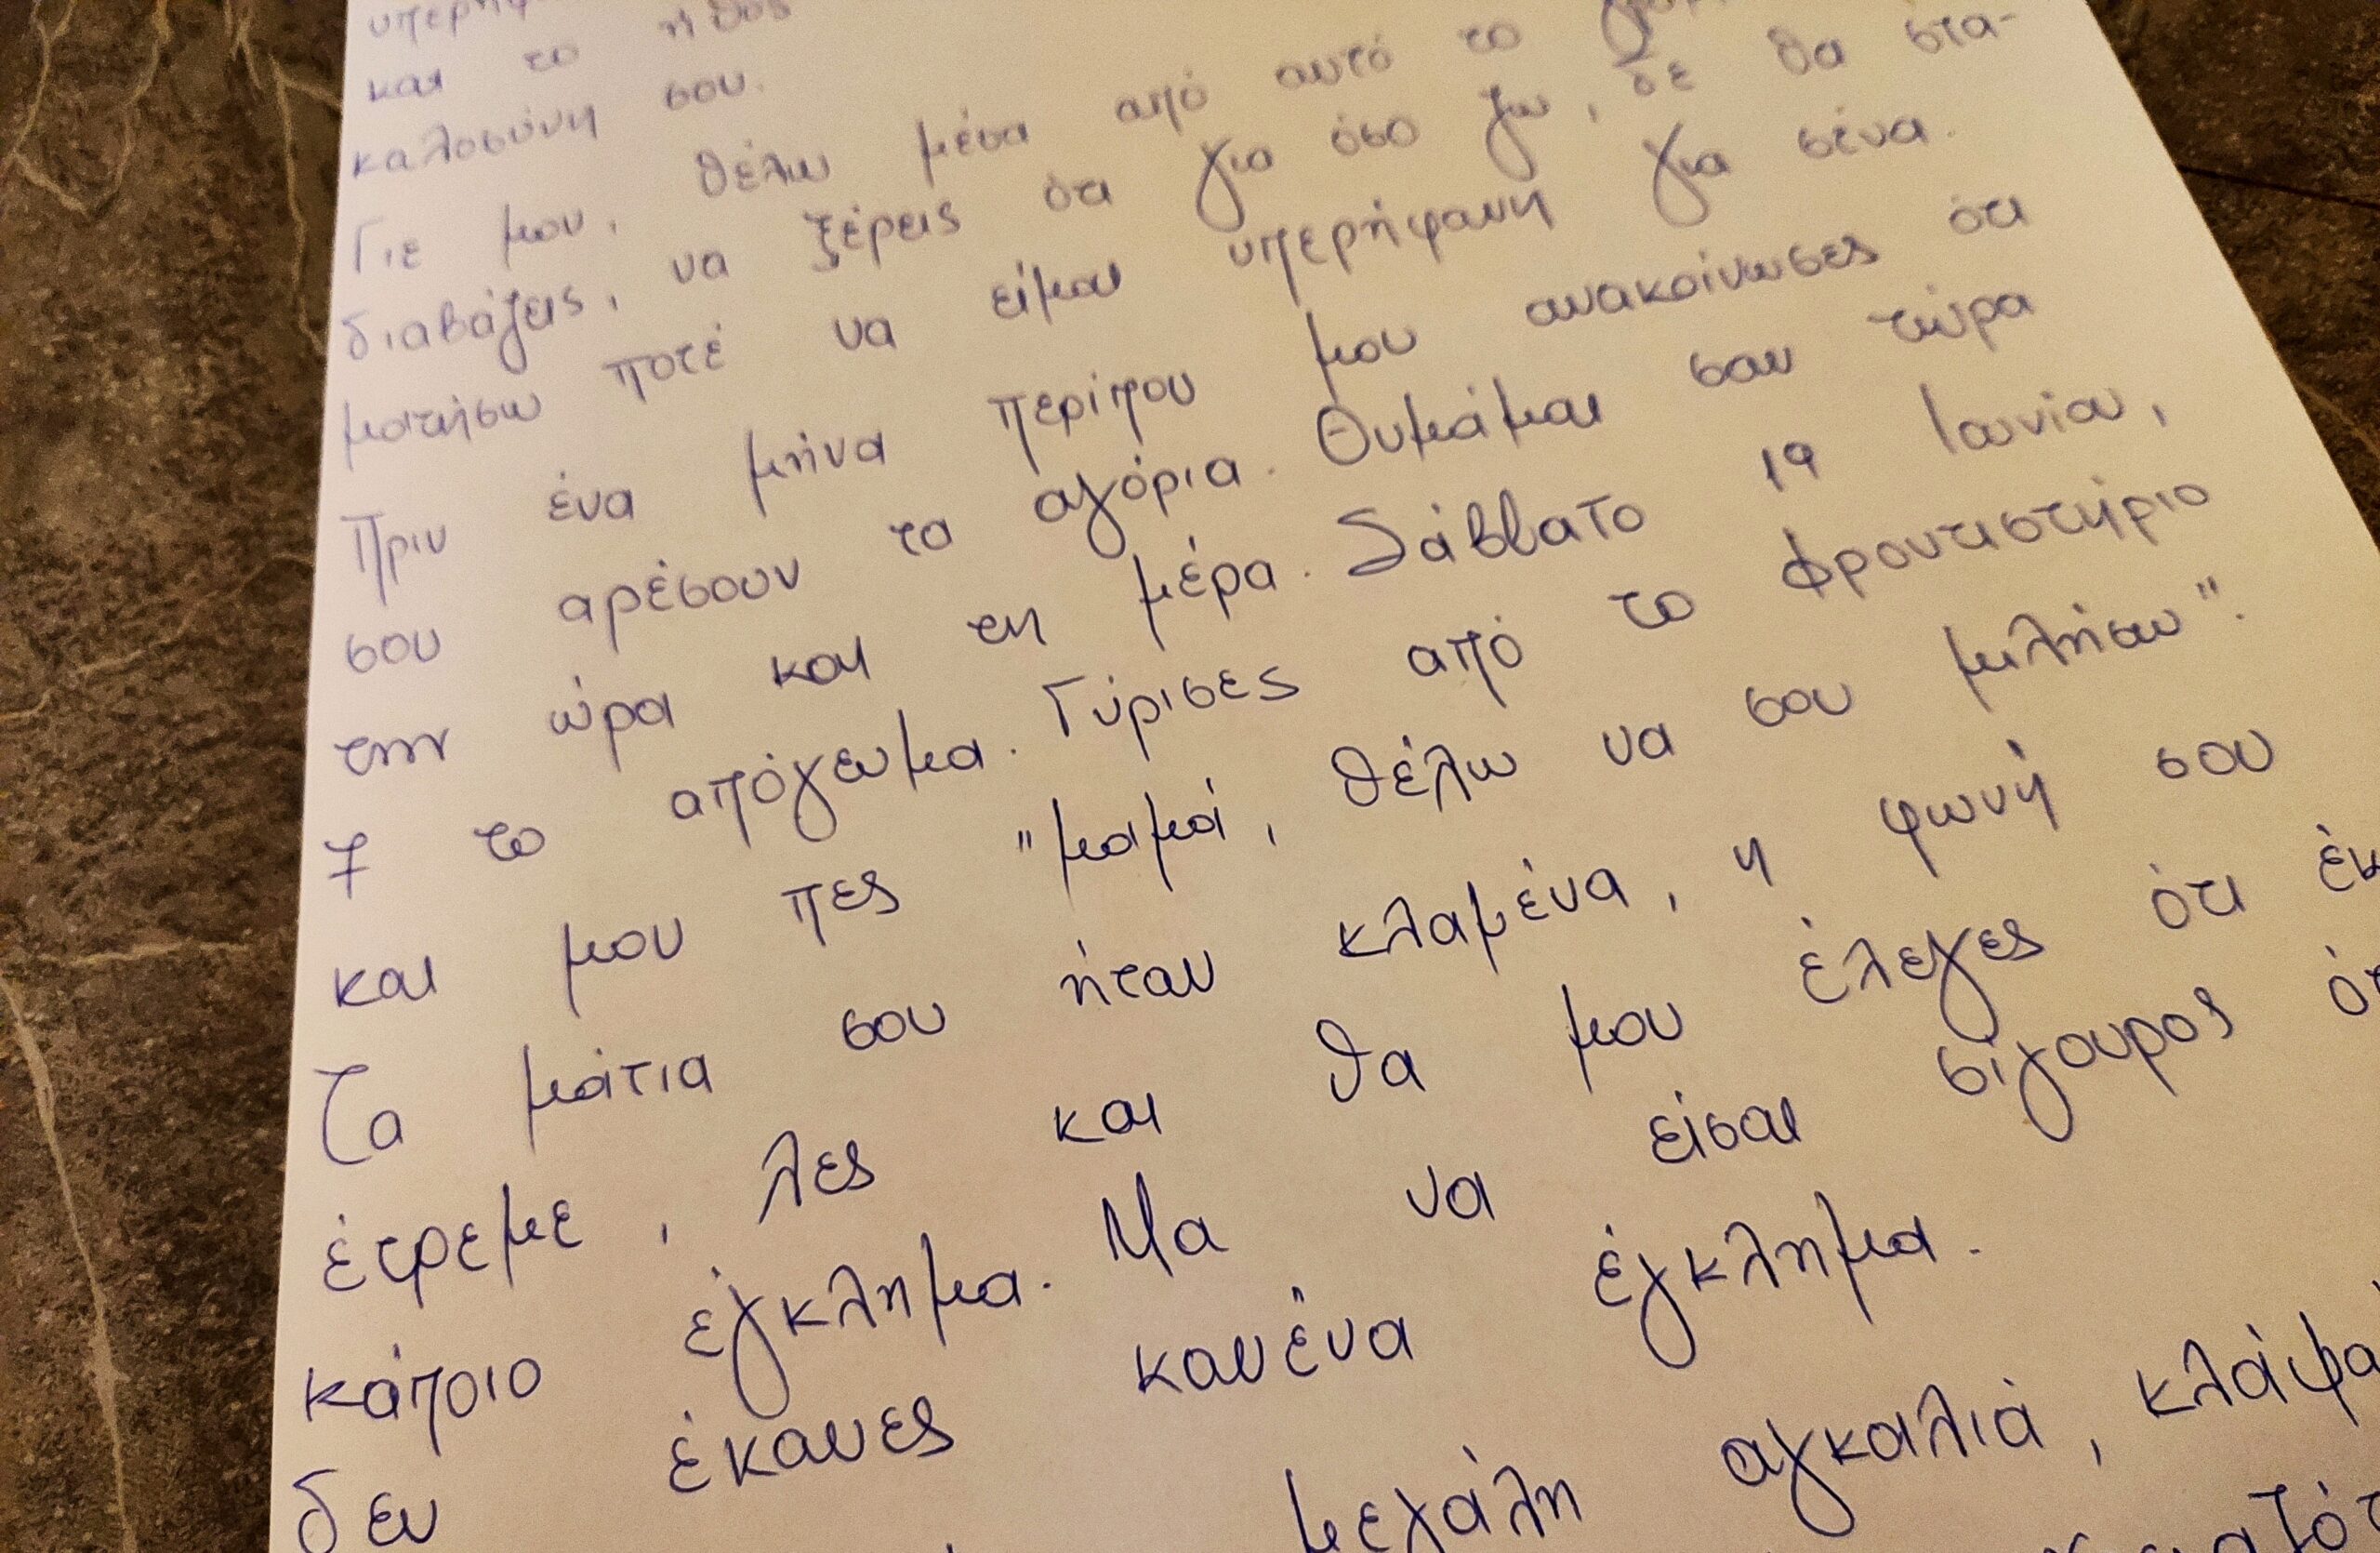 και το ήθος
καλοσύνη σου.
Γιε μου, θέλω μέσα από αυτό το
διαβάζεις, να ξέρεις ότι για όσο ζω, δε θα στα-
ματήσω ποτέ να είμαι υπερήφανη για σένα.
Πριν ένα μήνα περίπου μου ανακοίνωσες ότι
σου αρέσουν τα αγόρια. Θυμάμαι σαν τώρα
την ώρα και τη μέρα. Σάββατο 19 Ιουνίου,
7 το απόγευμα. Γύρισες από το φροντιστήριο
και μου πες "μαμά, θέλω να σου μιλήσω".
Τα μάτια σου ήταν κλαμένα, η φωνή σου
έτρεμε, λες και θα μου έλεγες ότι έκ
κάποιο έγκλημα. Μα να είσαι σίγουρος ότ
δεν έκανες κανένα έγκλημα.
μεγάλη αγκαλιά, κλάψα